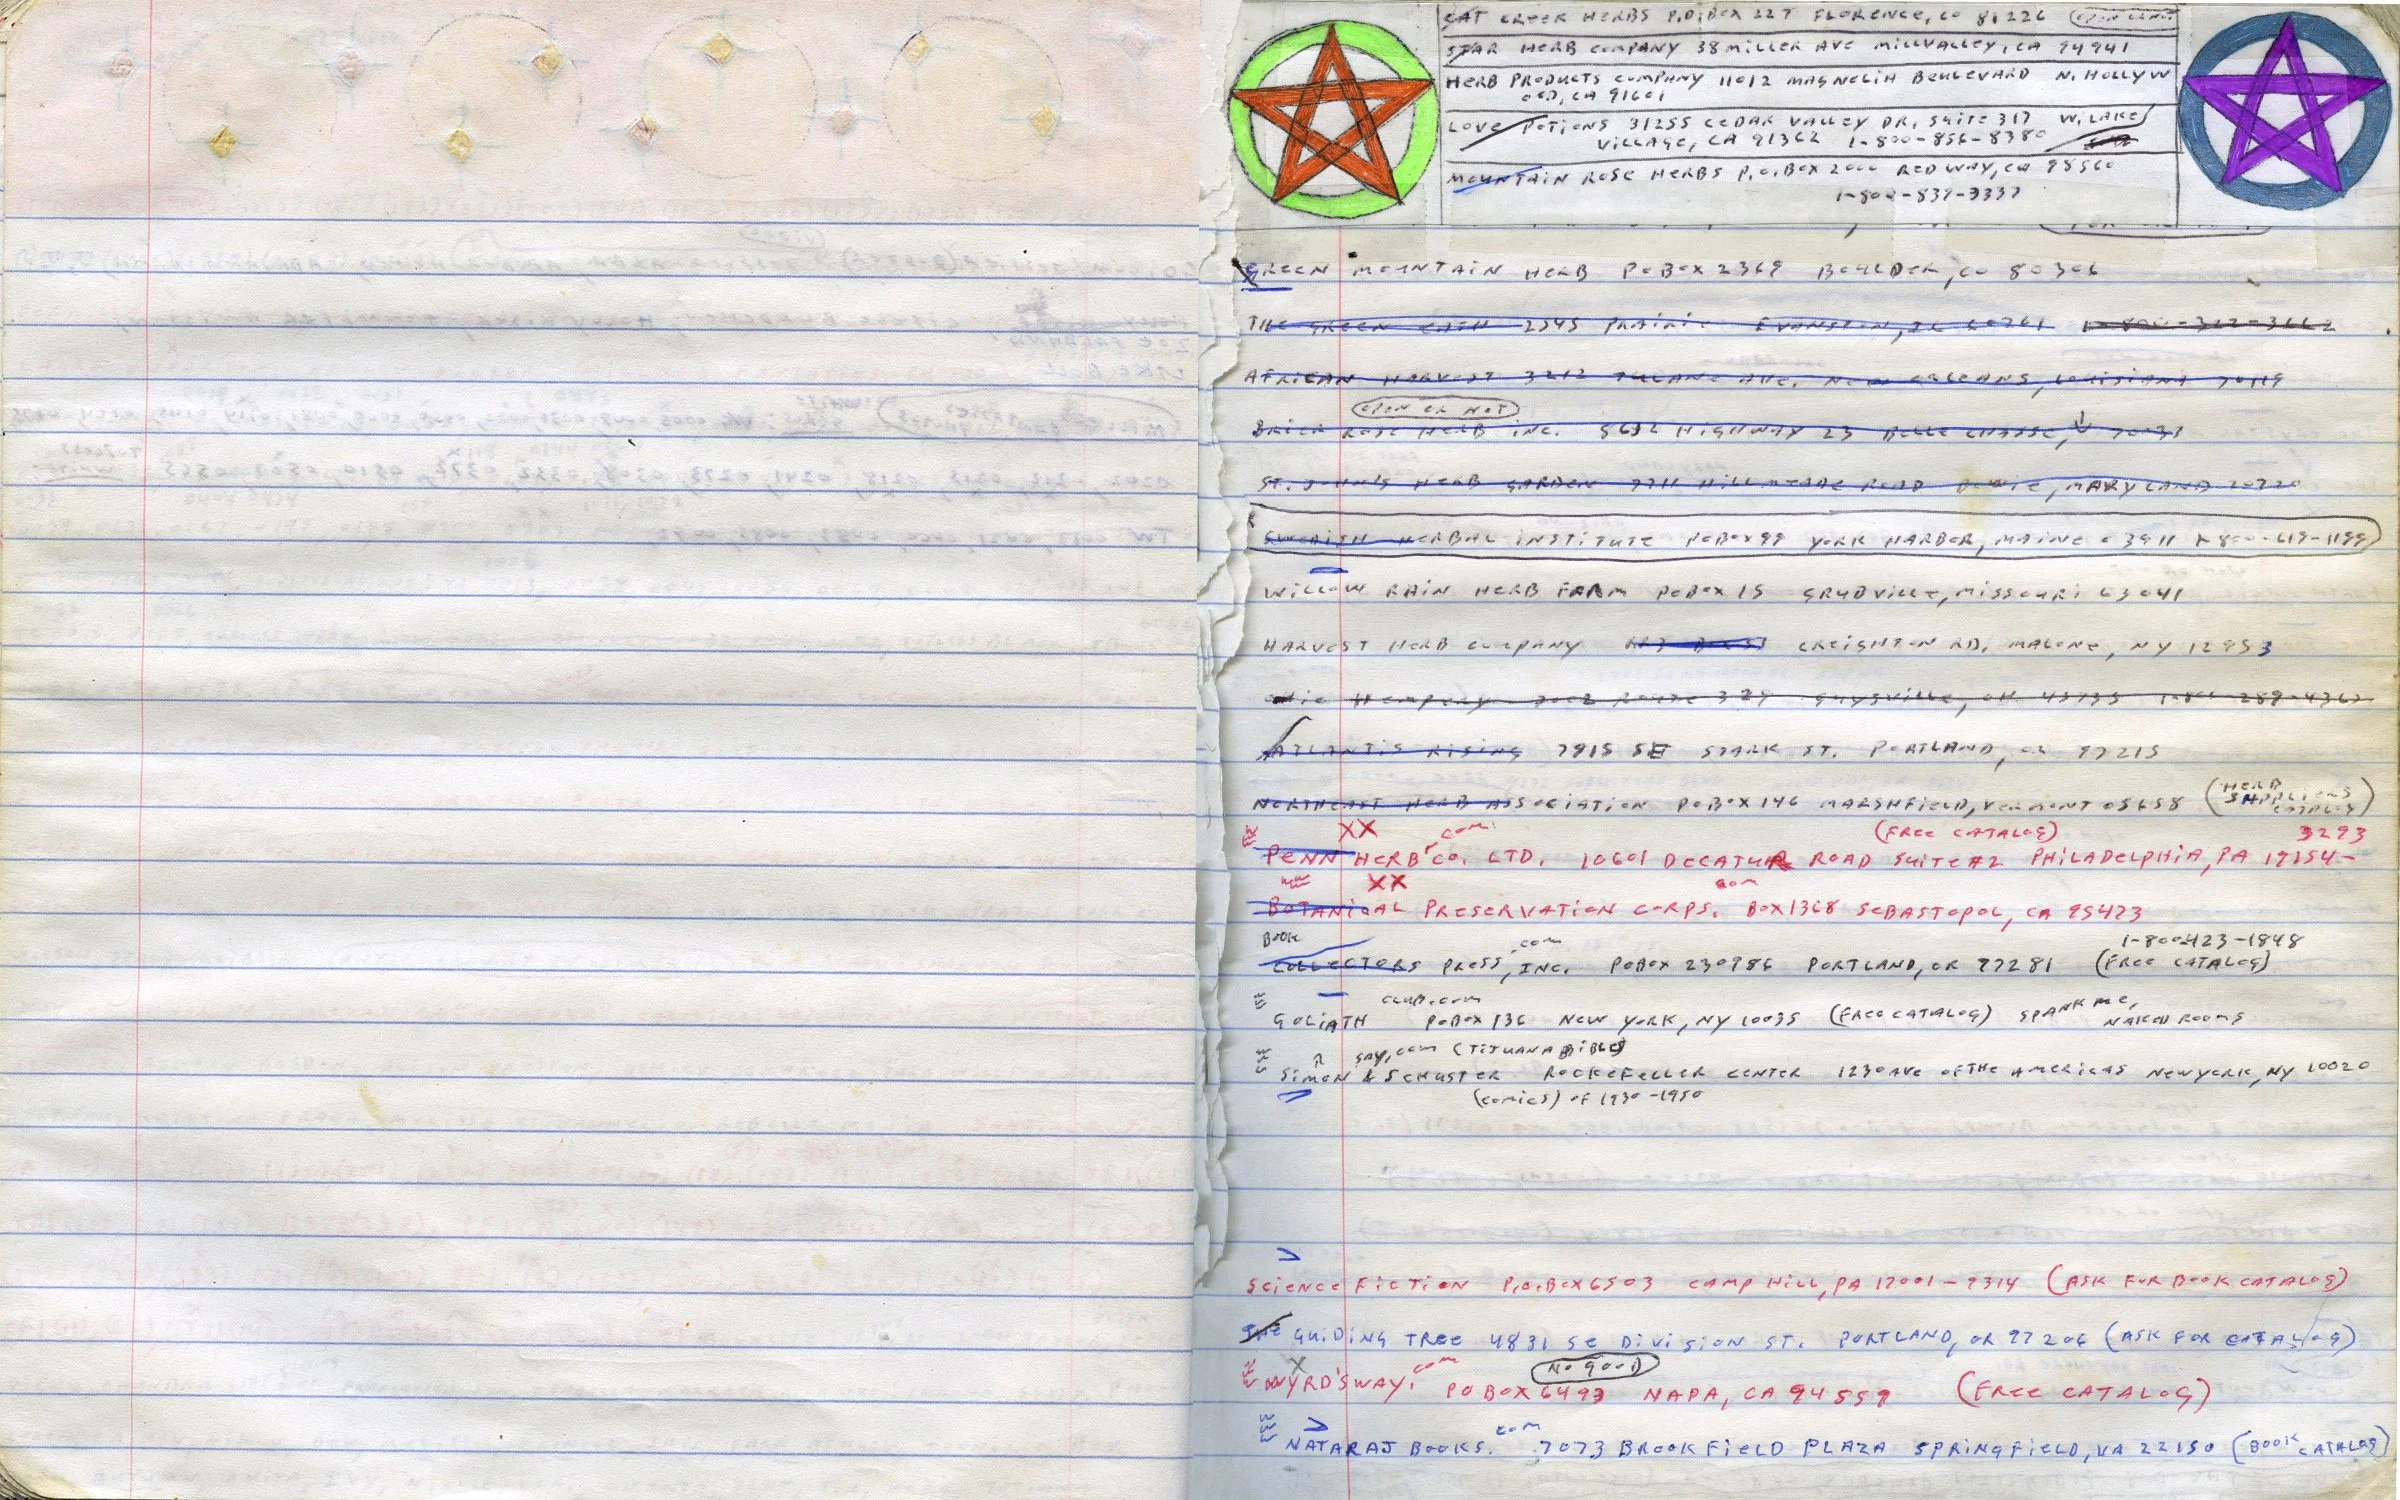 CAT CREEK HERBS P.O.BOX 227 FLORENCE, CO 81226
STAR HERB COMPANY 38 MILLER AVE MILLVALLEY, CA 94941
HERB PRODUCTS COMPANY 11012 MAGNOLIA BOULEVARD N. HOLLYW
OOD, CA 91601
LOVE POTIONS 31255 CEDAR VALLEY DR, SUITE 317 W. LAKE
VILLAGE, CA 91362 1-800-856-8380
MOUNTAIN ROSE HERBS P.O.BOX 2000 REDWAY, CA 95560
1-800-837-3337
GREEN MOUNTAIN HERB POBOX 2369 BOULDER, CO 80306
THE GREEN EATH 2545 PRAIRIE EVANSTON, IL 60201 1-800-322-3662
AFRICAN HARVEST 3212 TULANE AVE. NEW ORLEANS, LOUISIANA 70119
OPEN OR NOT
BRIER ROSE HERB INC. 8632 HIGHWAY 23 BELLE CHASSE, 70037
ST. JOHN'S HERB GARDEN 7711 HILLMEADE ROAD BOWIE, MARYLAND 20720
SWEDISH HERBAL INSTITUTE POBOX 99 YORK HARBOR, MAINE 03911 1-800-619-1199
WILLOW RAIN HERB FARM POBOX 15 GRUBVILLE, MISSOURI 63041
HARVEST HERB COMPANY CREIGHTON RD. MALONE, NY 12953
OHIO HEMPERY 7002 ROUTE 329 GUYSVILLE, OH 45735 1-800-289-4367
ATLANTIS RISING 7915 SE STARK ST. PORTLAND, OR 97215
NORTHEAST HERB ASSOCIATION POBOX 146 MARSHFIELD, VERMONT 05658 (HERB SUPPLIERS CATALOG)
XX com (FREE CATALOG) 3293
PENN HERB CO. LTD. 10601 DECATUR ROAD SUITE #2 PHILADELPHIA, PA 19154-
XX com
BOTANICAL PRESERVATION CORPS. BOX 1368 SEBASTOPOL, CA 95473
BOOK .com 1-800-423-1848
COLLECTORS PRESS, INC. POBOX 230986 PORTLAND, OR 97281 (FREE CATALOG)
CLUB.COM
GOLIATH POBOX 136 NEW YORK, NY 10035 (FREE CATALOG) SPANK ME, NAKED ROOMS
SAY.COM (TIJUANA BIBLES)
SIMON & SCHUSTER ROCKEFELLER CENTER 1230 AVE OF THE AMERICAS NEW YORK, NY 10020
(COMICS) OF 1930-1950
SCIENCE FICTION P.O.BOX 6503 CAMP HILL, PA 17001-9314 (ASK FOR BOOK CATALOG)
THE GUIDING TREE 4831 SE DIVISION ST. PORTLAND, OR 97206 (ASK FOR CATALOG)
X com NO GOOD
WYRD'SWAY. POBOX 6493 NAPA, CA 94559 (FREE CATALOG)
com
NATARAJ BOOKS. 7073 BROOKFIELD PLAZA SPRINGFIELD, VA 22150 (BOOK CATALOG)